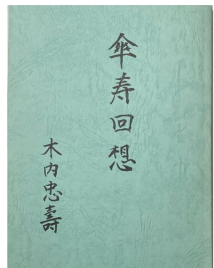 傘寿回想
木内忠壽